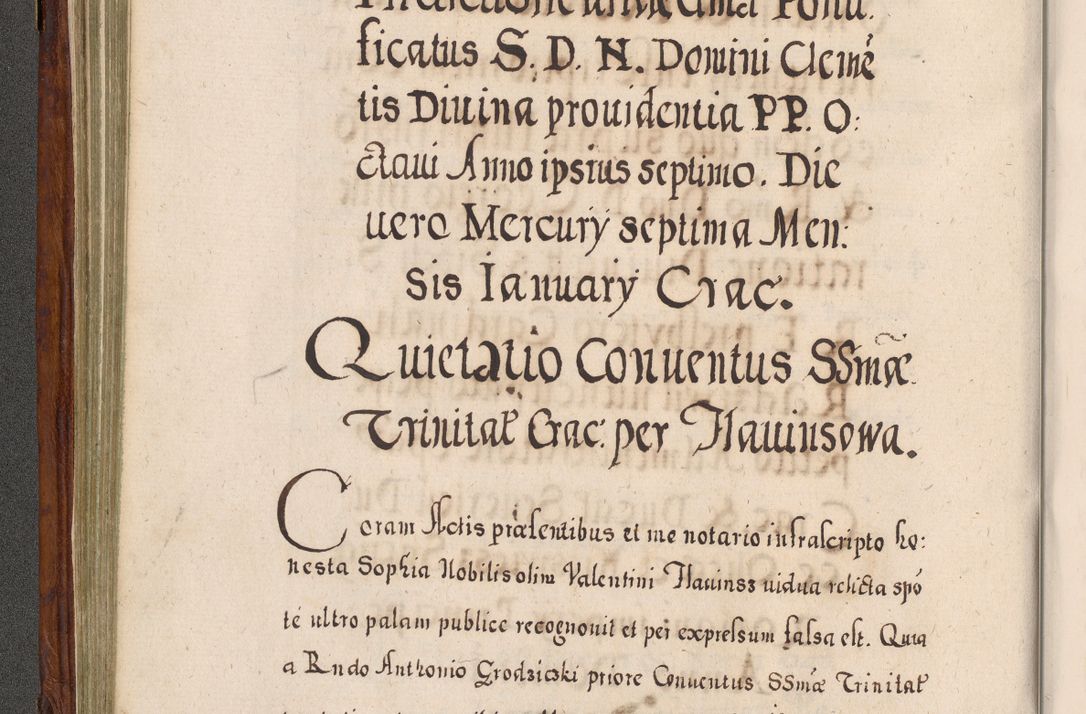 Indictione undecima Ponti:
ficatus S. D. N. Domini Clemẽ
tis Diuina prouidentia PP. O:
ctaui Anno ipsius septimo. Die
uero Mercurÿ septima Men:
sis Ianuarÿ Crac.
Quietatio Conuentus SSmæ
Trinitat Crac: per Ilauinsowa.
Coram Actis præsentibus et me notario infrascripto ho:
nesta Sophia Nobilis olim Valentini Ilauinss uidua relicta spõ
te ultro palam publice recognouit et per expressum falsa est. Quia
a Rndo Anthonio Grodzicski priore Conuentus SSmæ Trinitat